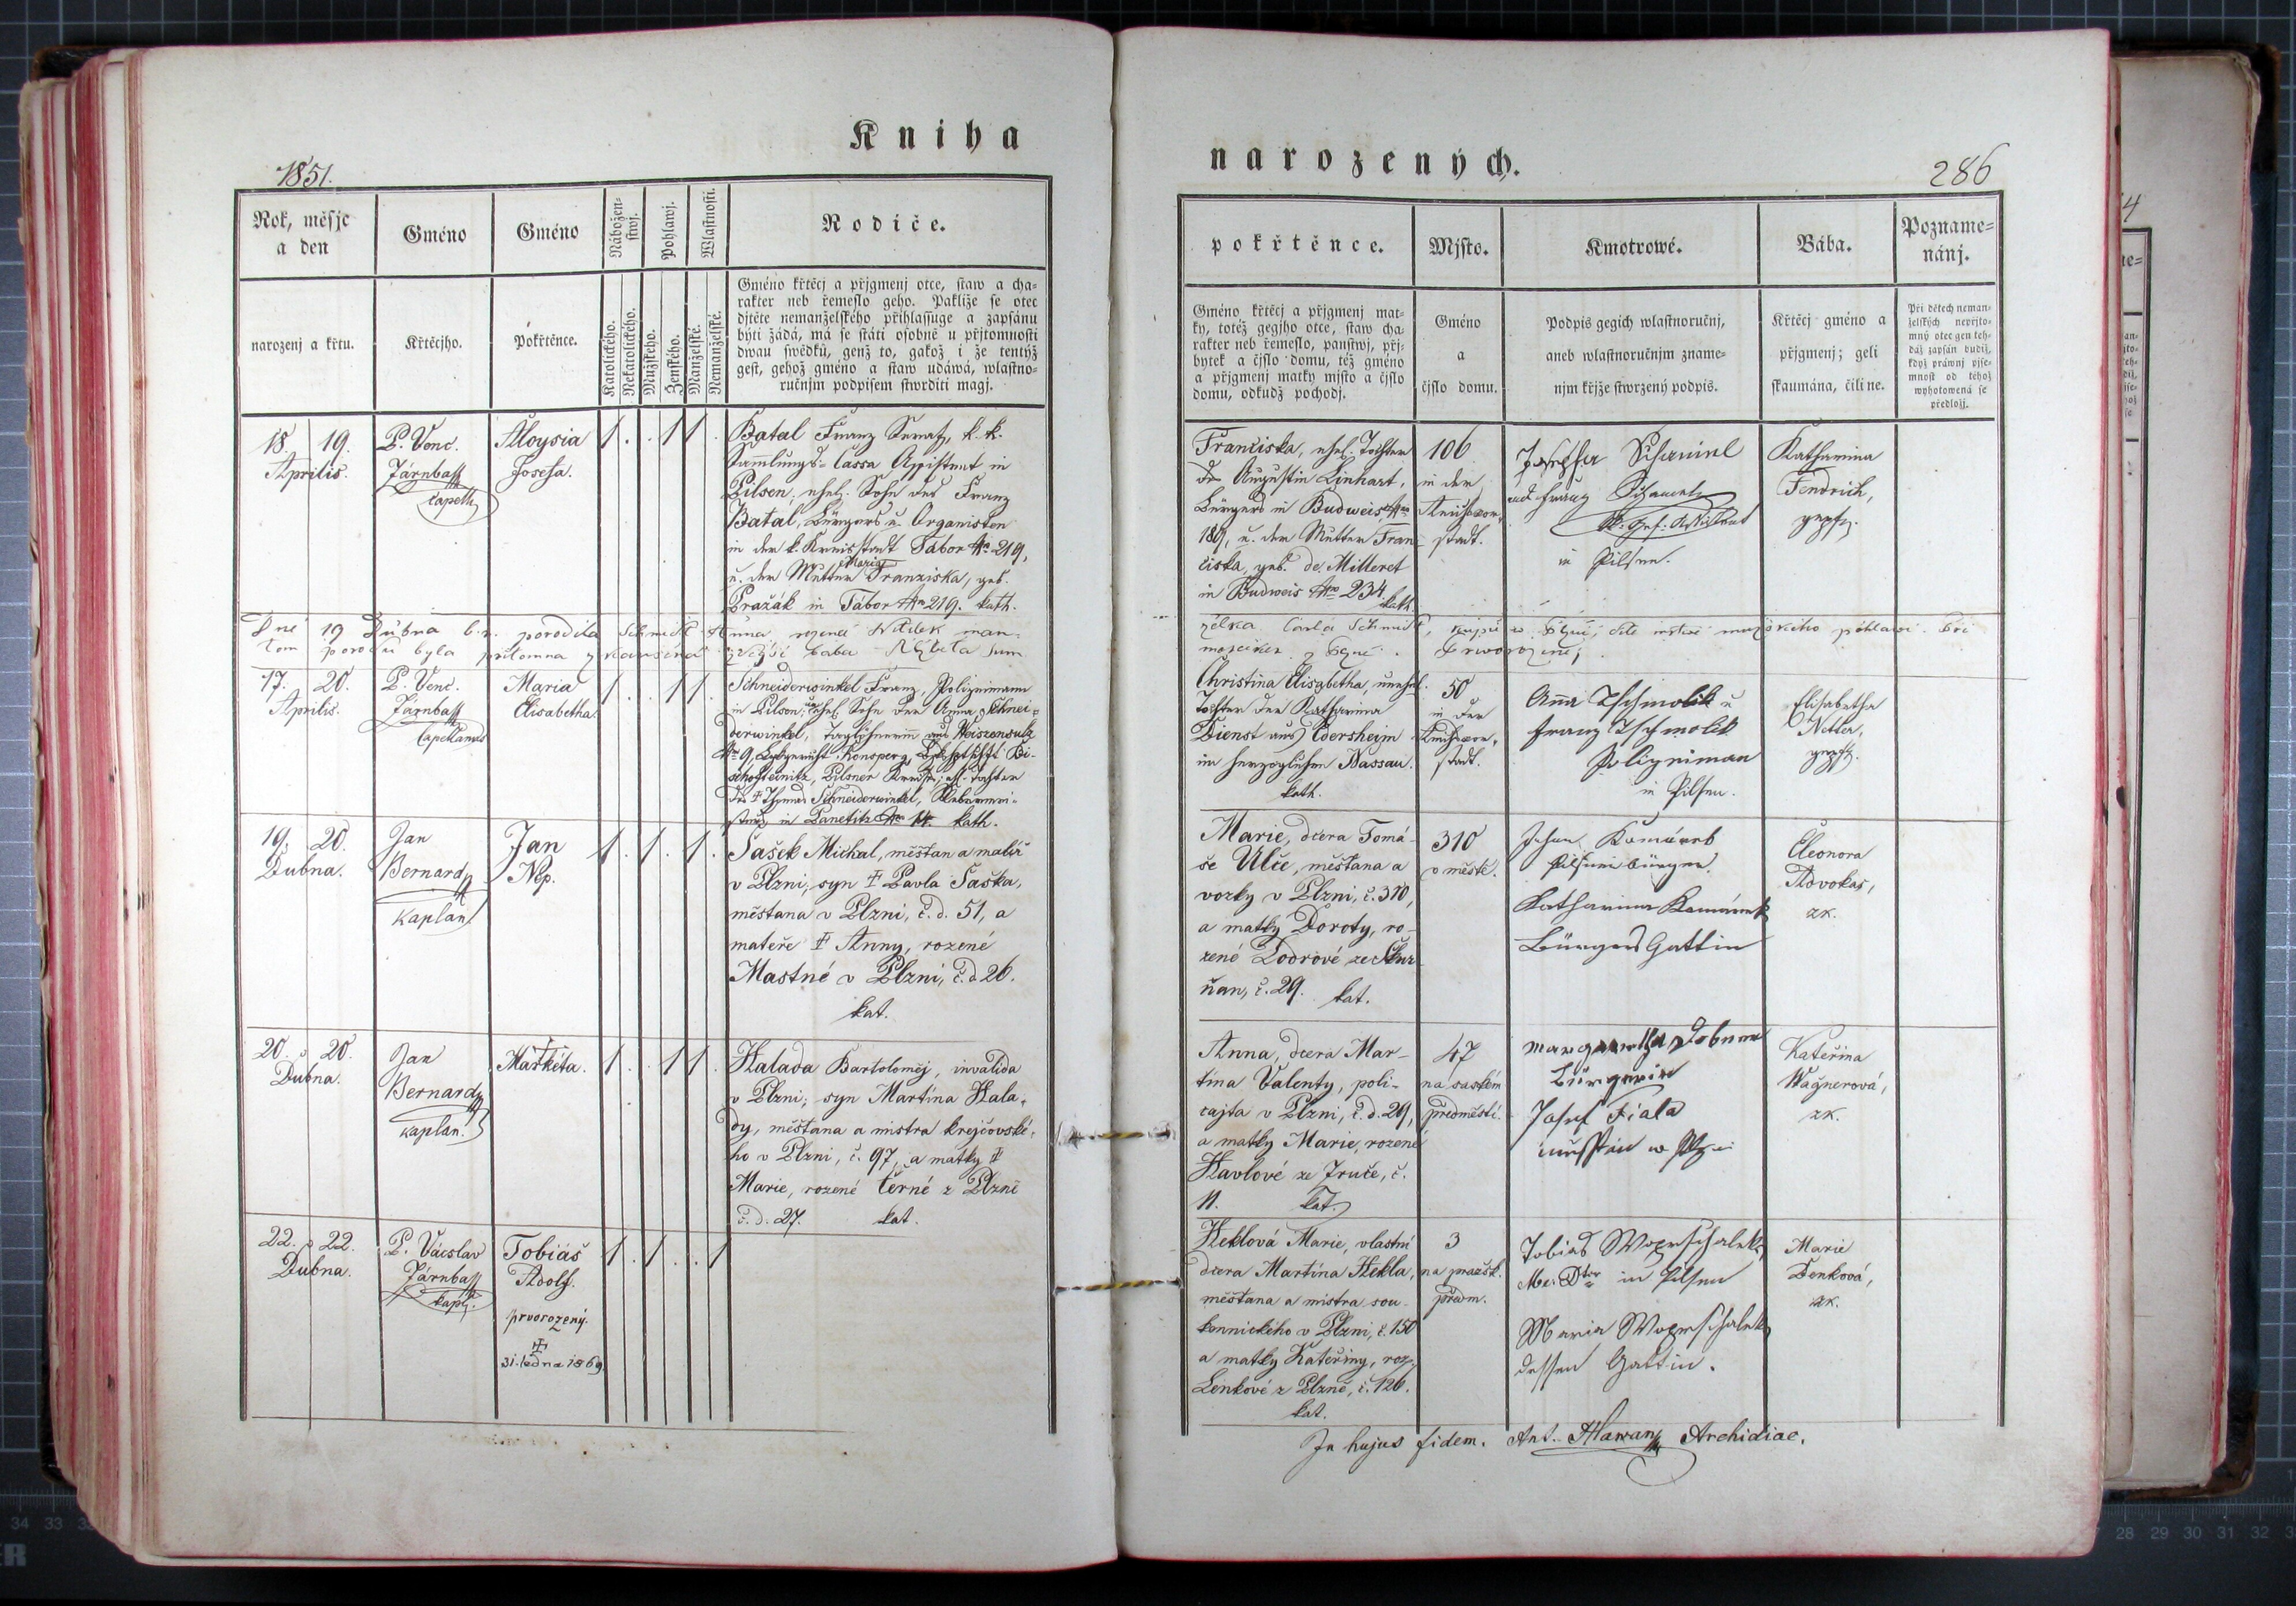 Kniha
narozených.
1851.
286
Rok, měsjc
a den
Gméno
Gméno
Nábožen-
stwj.
Pohlawj.
Wlastnosti.
Rodiče.
narozenj a křtu.
Křtěcjho.
Pokřtěnce.
Katolického.
Nekatolického.
Mužského.
Ženského.
Manželské.
Nemanželské.
Gméno křtěcj a přjgmenj otce, staw a cha-
rakter neb řemeslo geho. Pakliže se otec
djtěte nemanželského přihlassuge a zapsánu
býti žádá, má se státi osobně u přjtomnosti
dwau swědků, genž to, gakož i že tentýž
gest, gehož gméno a staw udáwá, wlastno-
ručnjm podpisem stwrditi magj.
pokřtěnce.
Mjsto.
Kmotrowé.
Bába.
Pozname-
nánj.
Gméno křtěcj a přjgmenj mat-
ky, totéž gegjho otce, staw cha-
rakter neb řemeslo, panstwj, přj-
bytek a čjslo domu, též gméno
a přjgmenj matky mjsto a čjslo
domu, odkudž pocházj.
Gméno
a
čjslo domu.
Podpis gegich wlastnoručnj,
aneb wlastnoručnjm zname-
njm křjže stwrzený podpis.
Křtěcj gméno a
přjgmenj; geli
skaumána, čili ne.
Při dětech neman-
želských nepřjto-
mný otec gen teh-
dáž zapsán budiž,
když práwnj pjse-
mnost od téhož
wyhotowená se
předložj.
18. 19.
Aprilis.
P. Venc.
Járnbass
Capell.
Aloysia
Josefa.
1 . . 1 1 .
Batal Franz Seraf, k. k.
Sammlungs-Cassa Assistent in
Pilsen, ehel. Sohn des Franz
Batal, Bürgers u. Organisten
in der k. Kreisstadt Tábor No 219,
u. der Mutter Maria Franziska, geb.
Pražák in Tábor No 219. kath.
Franciska, ehel. Tochter
des Augustin Linhart,
Bürgers in Budweis No
189, u. der Mutter Fran-
ciska, geb. de Milleret
in Budweis No 234.
kath.
106
in der
Reichsvor-
stadt.
Josepha Schamel
und Franz Schamel
in Pilsen.
Katharina
Fendrich,
gepr.
Dne 19 Dubna b. r. porodila Schmidt Anna rozená man-
želka Carla Schmidt, v Plzni, dítě mrtvé mužského pohlaví. Při
tom porodu byla přítomna zkoušená baba Alžběta
z Plzně. Prvorozené;
17. 20.
Aprilis.
P. Venc.
Járnbass
Capellanus
Maria
Elisabetha.
1 . . 1 1 .
Schneiderwinkel Franz, Polizeimann
in Pilsen, unehel. Sohn der Anna Schnei-
derwinkel, Taglöhnerin aus Weiszensulz
No 9, Bezgericht Ronsperg, Bi-
schofteinitz, Pilsner Kreises; ehl. Tochter
des † Thomas Schneiderwinkel,
in No 14. kath.
Christina Elisabetha, unehel.
Tochter der Katharina
Dienst aus Edersheim
im herzoglichen Nassau.
kath.
50
in der
Reichsvor-
stadt.
Anna Tschmolik u
Franz Tschmolik
Polizeiman
in Pilsen.
Elisabetha
Netter,
gepr.
19. 20.
Dubna.
Jan
Bernard
kaplan
Jan
Nep.
1 . 1 . 1 .
Sašek Michal, měštan a malíř
v Plzni, syn † Pavla Saška,
měštana v Plzni, č. d. 51, a
mateře † Anny, rozené
Mastné v Plzni, č. d. 26.
kat.
Marie, dcera Tomá-
še Ulče, měštana a
vozky v Plzni, č. 310,
a matky Doroty, ro-
zené Lodrové ze Skvr-
ňan, č. 29. kat.
310
v městě.
Johan Komárek
Pilsner Bürger.
Katharina Komárek
Bürgers Gattin
Eleonora
Advokas,
zk.
20. 20.
Dubna.
Jan
Bernard
kaplan.
Markéta.
1 . . 1 1 .
Halada Bartoloměj, invalida
v Plzni; syn Martína Hala-
dy, měštana a mistra krejčovské-
ho v Plzni, č. 97, a matky †
Marie, rozené Černé z Plzně
č. d. 27. kat.
Anna, dcera Mar-
tína Valenty, poli-
cajta v Plzni, č. d. 29,
a matky Marie, rozené
Havlové ze Zruče, č.
11. kat.
47
na saském
předměstí.
Bürgerin
Josef Fiala
Kateřina
Wagnerová,
zk.
22. 22.
Dubna.
P. Vácslav
Járnbass
kapl.
Tobiáš
Adolf.
prvorozený.
†
31. ledna 1869
1 . 1 . . 1
Heklová Marie, vlastní
dcera Martína Hekla,
měštana a mistra sou-
kennického v Plzni, č. 150
a matky Kateřiny, roz.
Lenkové z Plzně, č. 126.
kat.
3
na pražsk.
předm.
Tobias Woperschalek
Me. Dtor in Pilsen
Maria Woperschalek
dessen Gattin.
Marie
Benková,
zk.
In hujus fidem. Ant. Hlawan Archidiac.